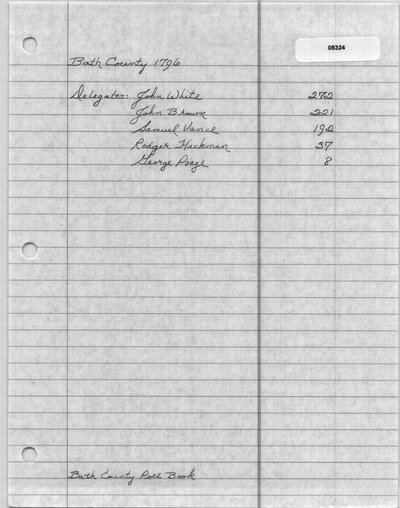 08324
Bath County 1796
Delegates: John White 272
John Brown 221
Samuel Vance 192
Rodger Heckman 37
George Poage 8
Bath County Poll Book